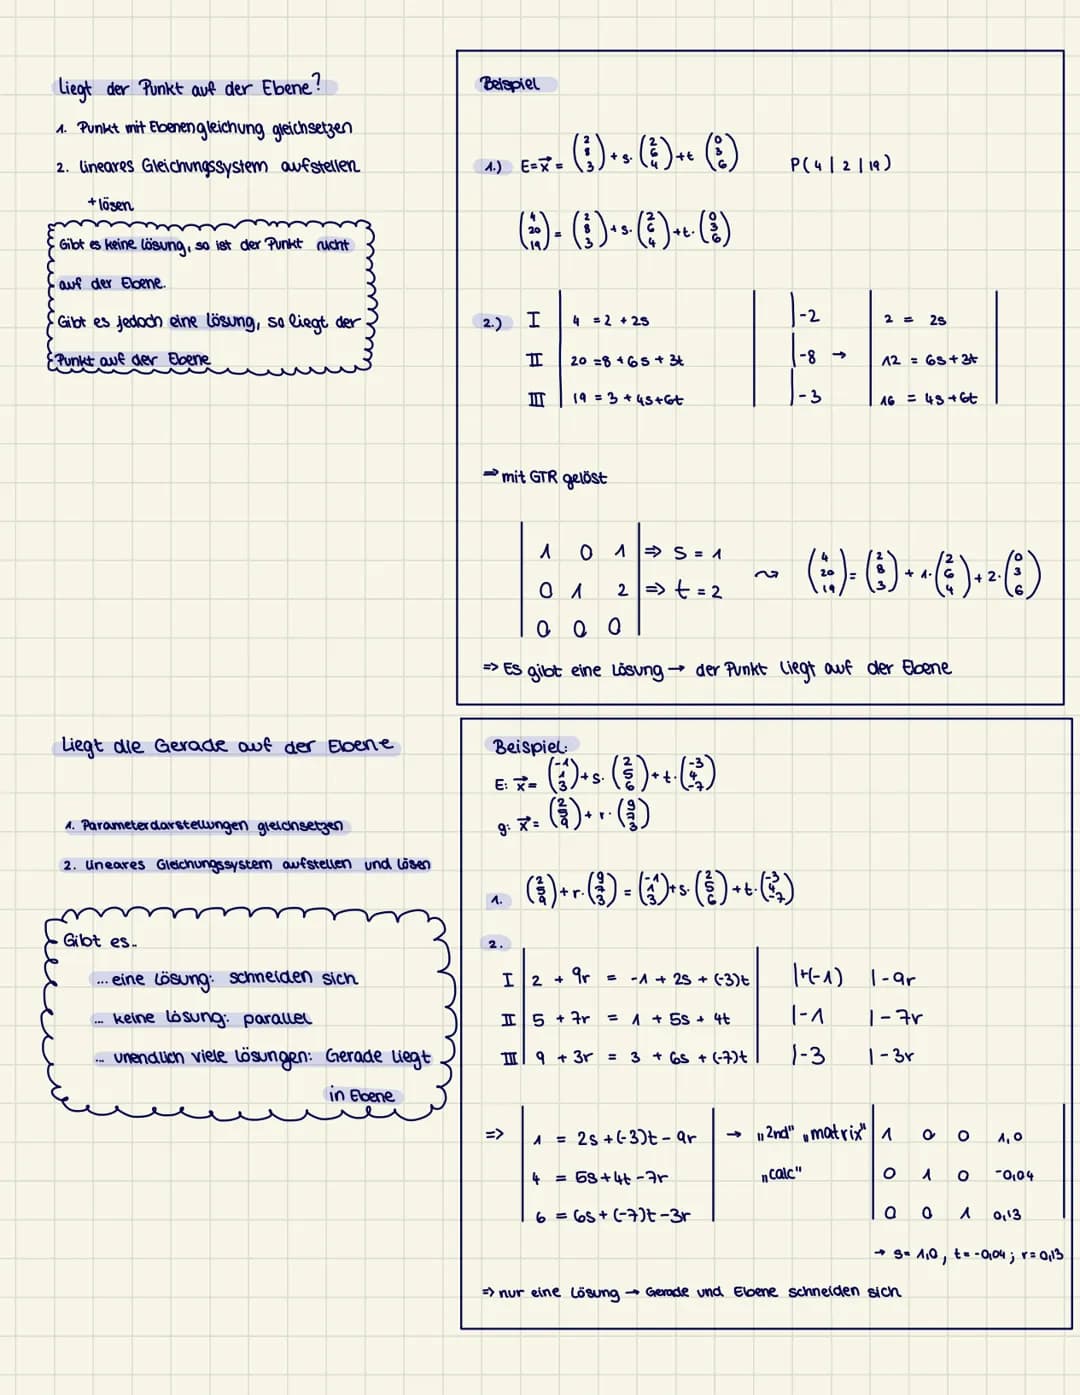 Liegt der Punkt auf der Ebene?
1. Punkt mit Ebenengleichung gleichsetzen
2. lineares Gleichungssystem aufstellen
+ lösen
Gibt es keine Lösung, so ist der Punkt nicht
auf der Ebene.
Gibt es jedoch eine Lösung, so liegt der
Punkt auf der Ebene
Beispiel
1.) E=x⃗ = (2 8 3) + s· (2 6 4) + t (0 3 6) P(4 | 2 | 19)
(4 20 19) = (2 8 3) + s· (2 6 4) + t· (0 3 6)
2.) I | 4 = 2 + 2s | |-2 | 2 = 2s |
II | 20 = 8 + 6s + 3t | |-8 → | 12 = 6s + 3t |
III | 19 = 3 + 4s + 6t | |-3 | 16 = 4s + 6t |
⇒ mit GTR gelöst
| 1 0 1 | ⇒ s = 1
| 0 1 2 | ⇒ t = 2 ⇝ (4 20 19) = (2 8 3) + 1· (2 6 4) + 2· (0 3 6)
| 0 0 0 |
=> Es gibt eine Lösung → der Punkt liegt auf der Ebene
Liegt die Gerade auf der Ebene
1. Parameterdarstellungen gleichsetzen
2. lineares Gleichungssystem aufstellen und lösen
Gibt es..
... eine Lösung: schneiden sich
... keine Lösung: parallel
... unendlich viele Lösungen: Gerade liegt
in Ebene
Beispiel:
E: x⃗ = (-1 1 3) + s· (2 5 6) + t· (-3 4 -7)
g: x⃗ = (2 5 9) + r· (9 7 3)
1. (2 5 9) + r· (9 7 3) = (-1 1 3) + s· (2 5 6) + t· (-3 4 -7)
2.
I | 2 + 9r = -1 + 2s + (-3)t | |+(-1) |-9r
II | 5 + 7r = 1 + 5s + 4t | |-1 |-7r
III | 9 + 3r = 3 + 6s + (-7)t | |-3 |-3r
=> | 1 = 2s + (-3)t - 9r | → „2nd" „matrix" | 1 0 0 1,0 |
| 4 = 5s + 4t - 7r | „calc" | 0 1 0 -0,04 |
| 6 = 6s + (-7)t - 3r | | 0 0 1 0,13 |
→ s= 1,0, t= -0,04; r= 0,13
=> nur eine Lösung → Gerade und Ebene schneiden sich